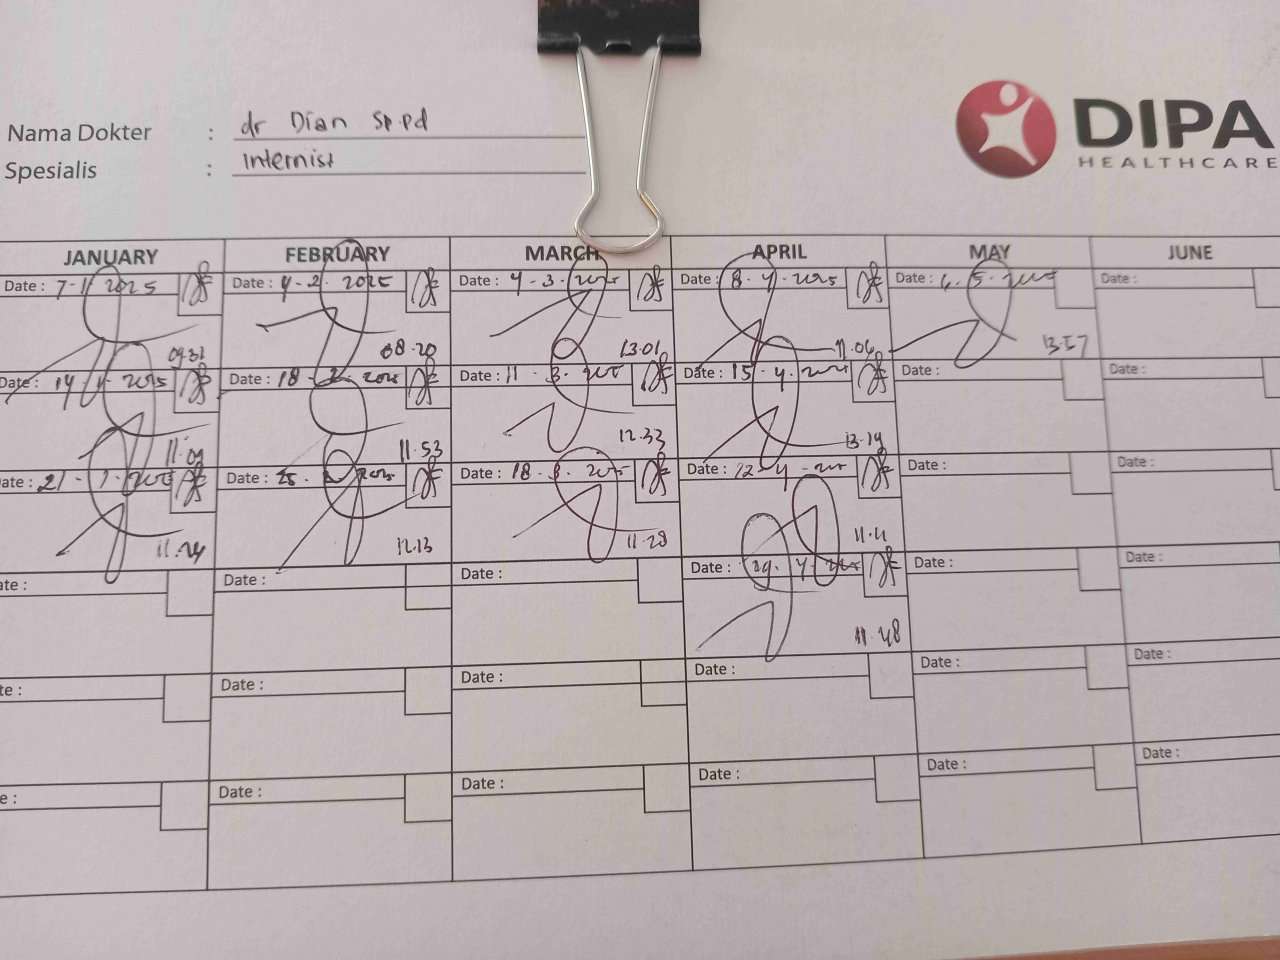 Nama Dokter : dr Dian Sp.pd
Spesialis : Internist
DIPA
HEALTHCARE
JANUARY FEBRUARY MARCH APRIL MAY JUNE
Date : 7-1-2025 Date : 4-2-2025 Date : 4-3-2025 Date : 8-4-2025 Date : 6.5.2025 Date :
08.20 13.01 11.06 13.57
Date : 14-1-2025 Date : 18-2-2025 Date : 11-3-2025 Date : 15-4-2025 Date : Date :
11.09 11.53 12.33 13.19
Date : 21-1-2025 Date : 25-2-2025 Date : 18-3-2025 Date : 22-4-2025 Date : Date :
11.24 12.13 11.28 11.11
ate : Date : Date : Date : 29.4.2025 Date : Date :
11.48
te : Date : Date : Date : Date : Date :
e : Date : Date : Date : Date : Date :